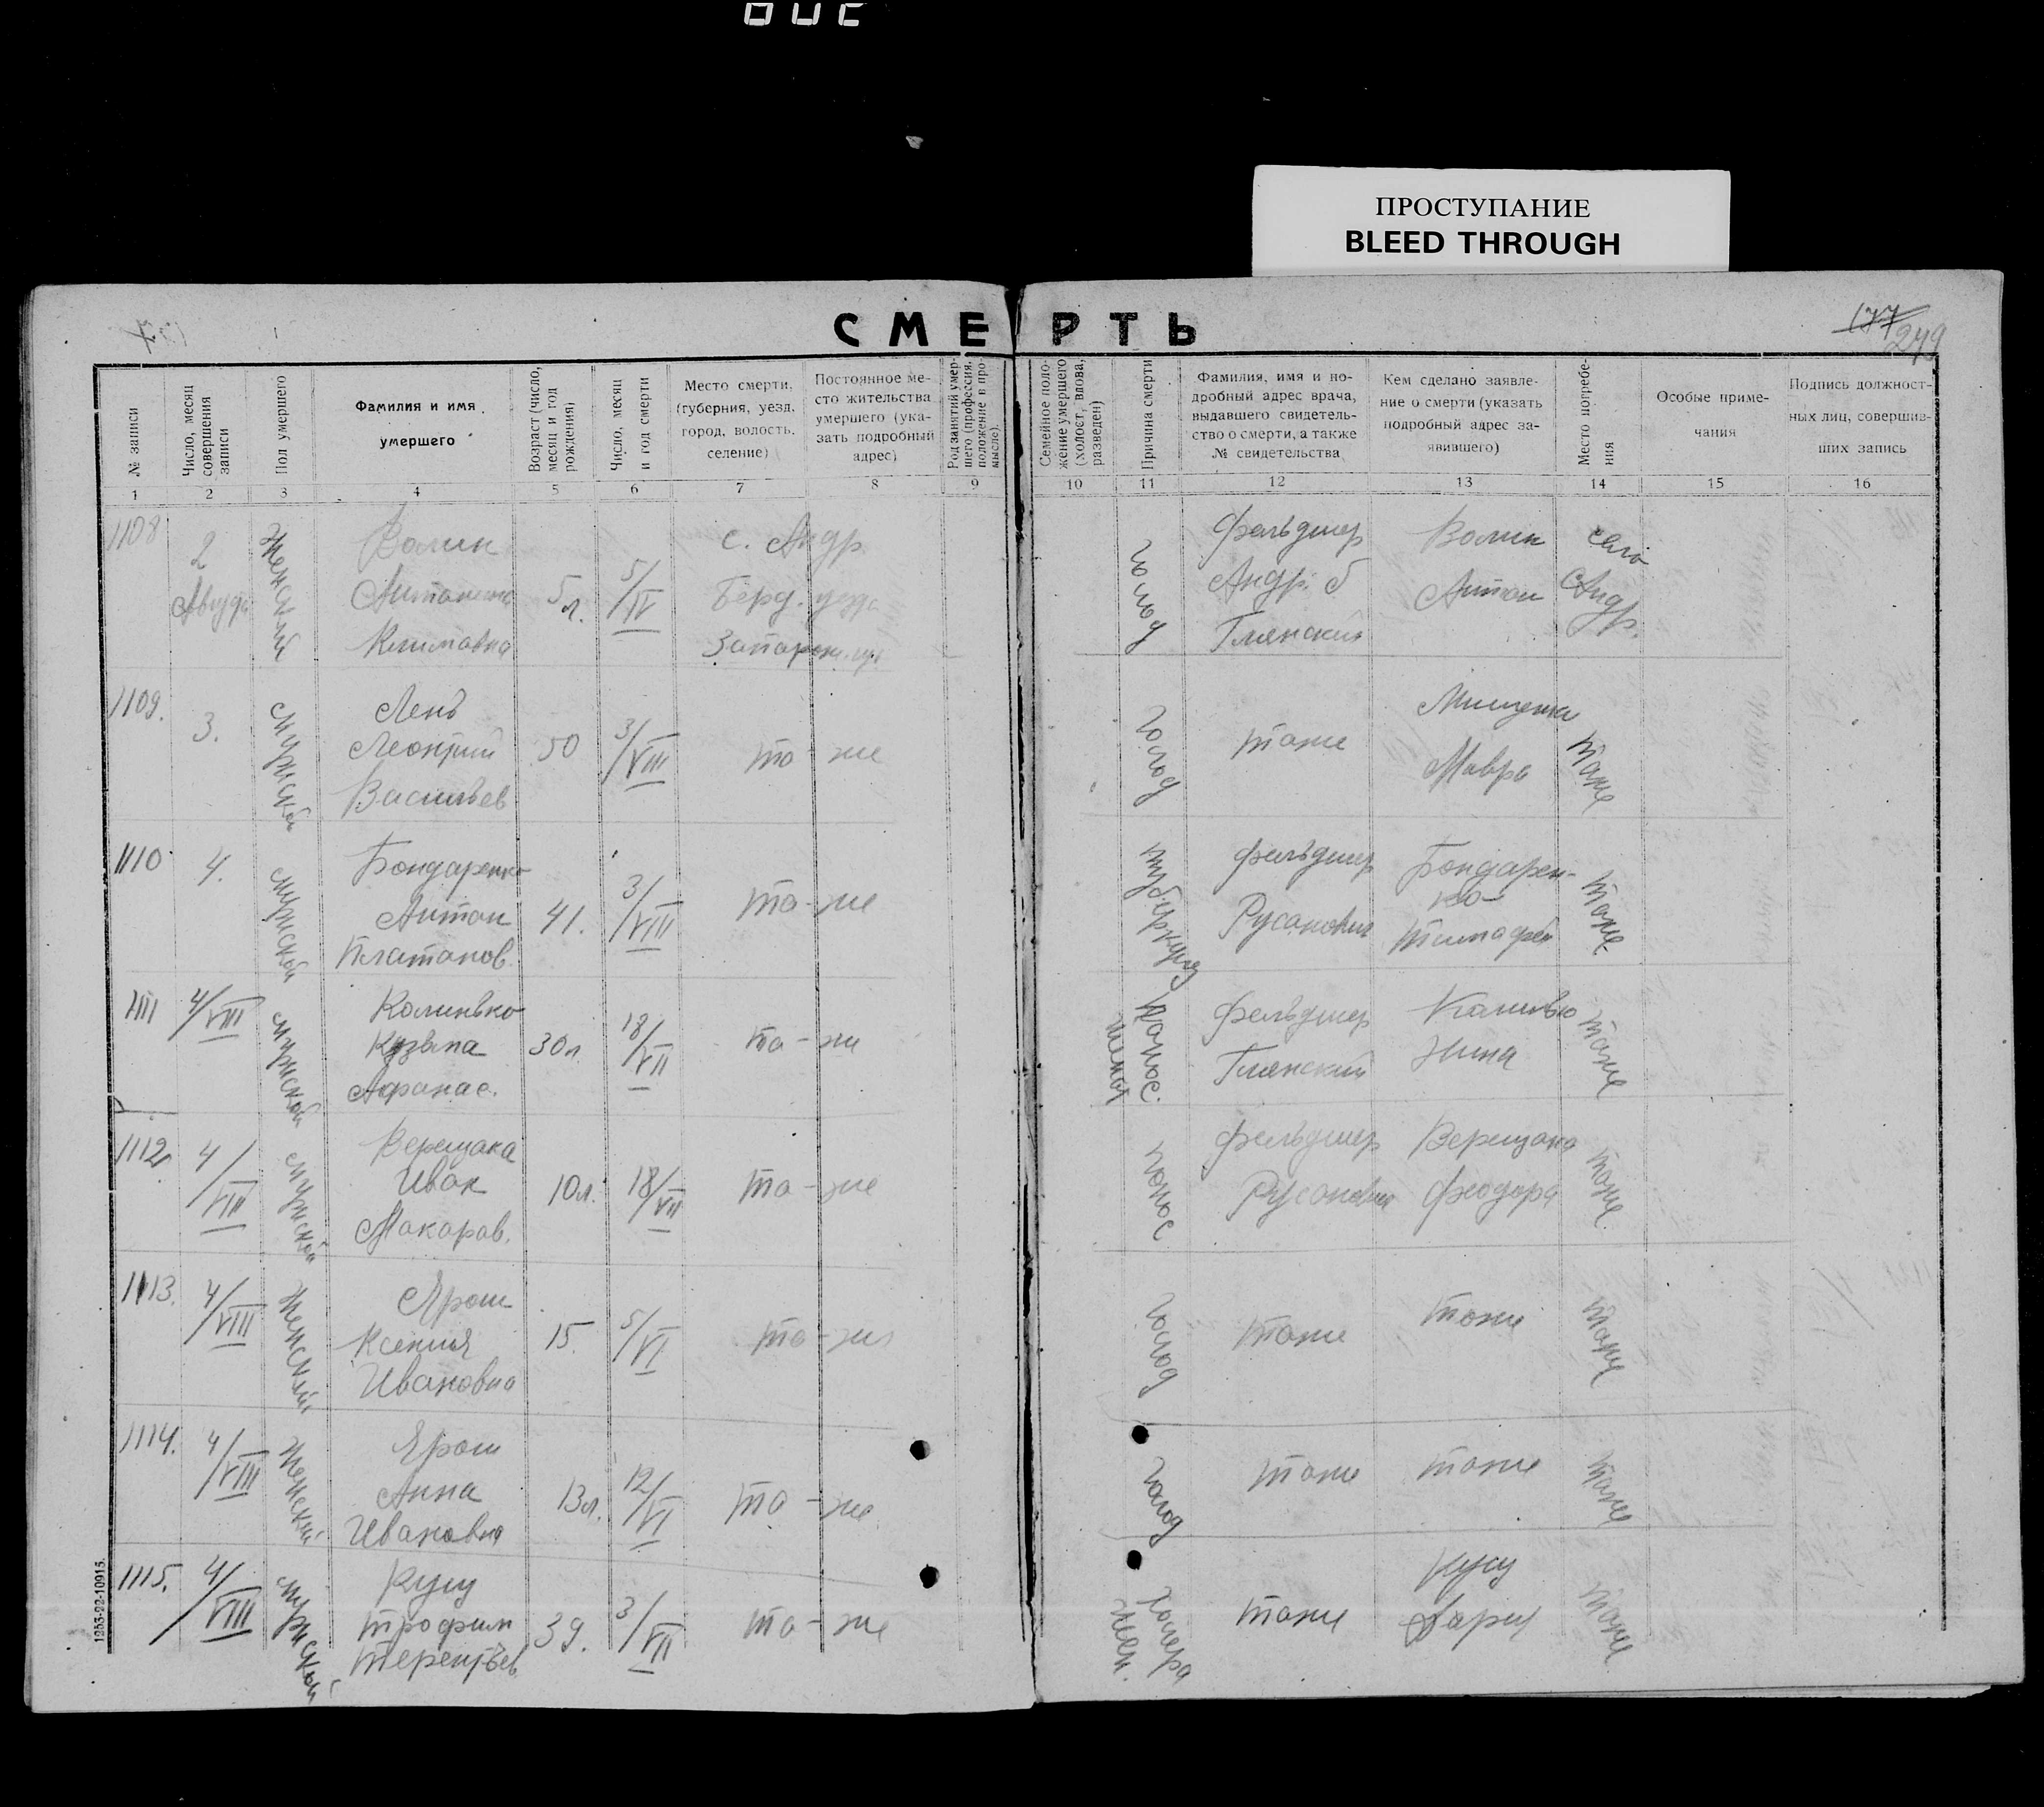 ПРОСТУПАНИЕ
BLEED THROUGH
СМЕРТЬ
177
279
№ записи
Число, месяц совершения записи
Пол умершего
Фамилия и имя умершего
Возраст (число, месяц и год рождения)
Число, месяц и год смерти
Место смерти, (губерния, уезд, город, волость, селение)
Постоянное место жительства умершего (указать подробный адрес)
Род занятий умершего (профессия, положение в промысле).
Семейное положение умершего (холост, вдова, разведен)
Причина смерти
Фамилия, имя и подробный адрес врача, выдавшего свидетельство о смерти, а также № свидетельства
Кем сделано заявление о смерти (указать подробный адрес заявившего)
Место погребения
Особые примечания
Подпись должностных лиц, совершивших запись
1 2 3 4 5 6 7 8 9 10 11 12 13 14 15 16
1108 2 Августа Женский
Волик
Климовна
5 л. 5/IV
с. Андр.
Берд. уезда
голод
фельдшер
Андр. б
Глянский
Волик
Антон
село
Андр.
1109. 3. мужской
Лень
Леонтий
Васильев
50 3/VIII то-же
голод
тоже
Мищенко
Мавра
тоже
1110 4. мужской
Бондаренко
Антон
Платонов.
41. 3/VIII то-же
туберкулез
фельдшер
Русанович
Бондарен-
ко
Тимофей
тоже
1111 4/VIII мужской
Кузьма
Афанас.
30л 18/VII то-же
понос.
фельдшер
Глянский
тоже
1112 4/VIII мужской
Верещака
Иван
Макаров.
10л. 18/VII то-же
понос
фельдшер
Русанович
Верещака
Феодора
тоже.
1113. 4/VIII Женский
Ярош
Ксения
Ивановна
15. 5/VI то-же
голод
тоже
тоже
тоже
1114. 4/VIII Женский
Ярош
Анна
Ивановна
13л. 12/VI то-же
голод
тоже
тоже
тоже
1115. 4/VIII мужской
Трофим
Терентьев
39. 3/VII то-же
холера
тоже
Дарья
тоже
1253-22-10915.